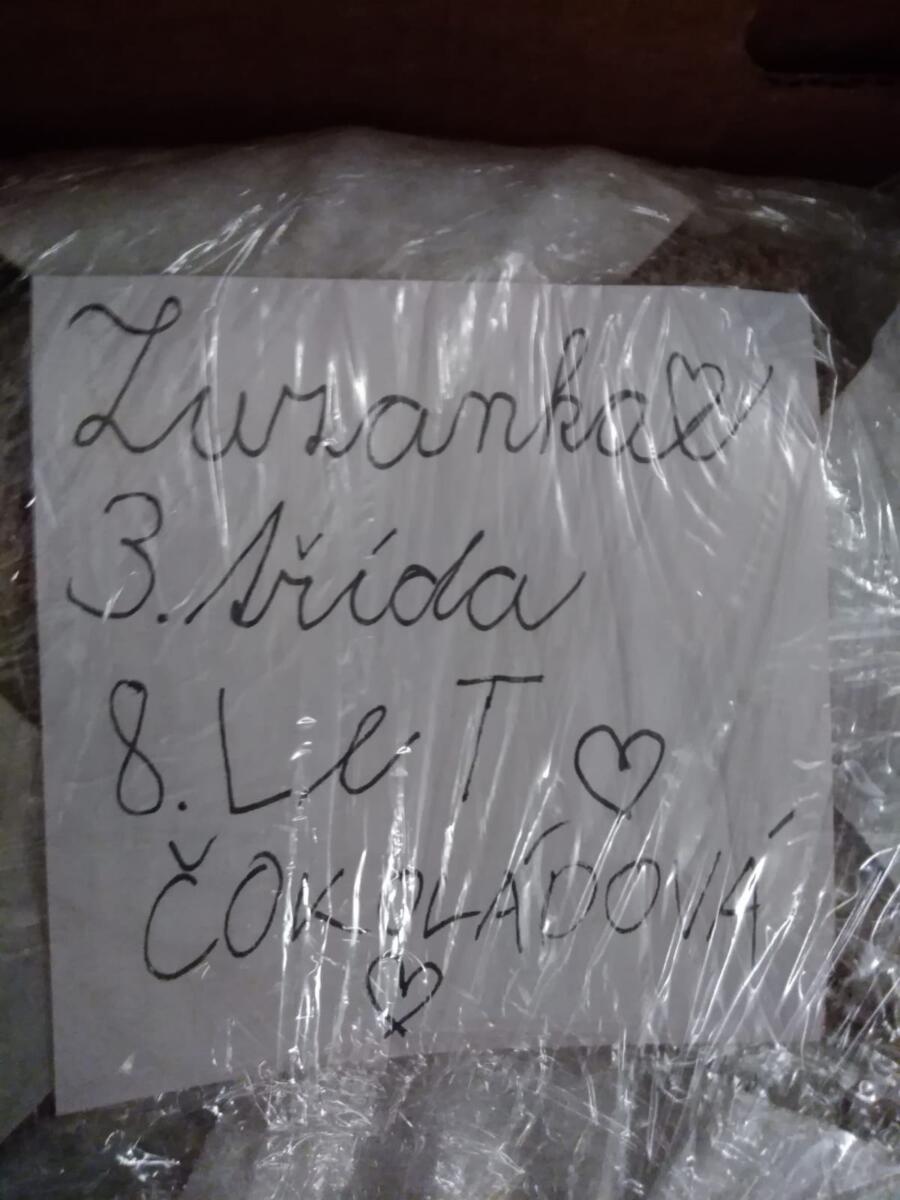 Zuzanka
3. třída
8. LeT
ČOKOLÁDOVÁ